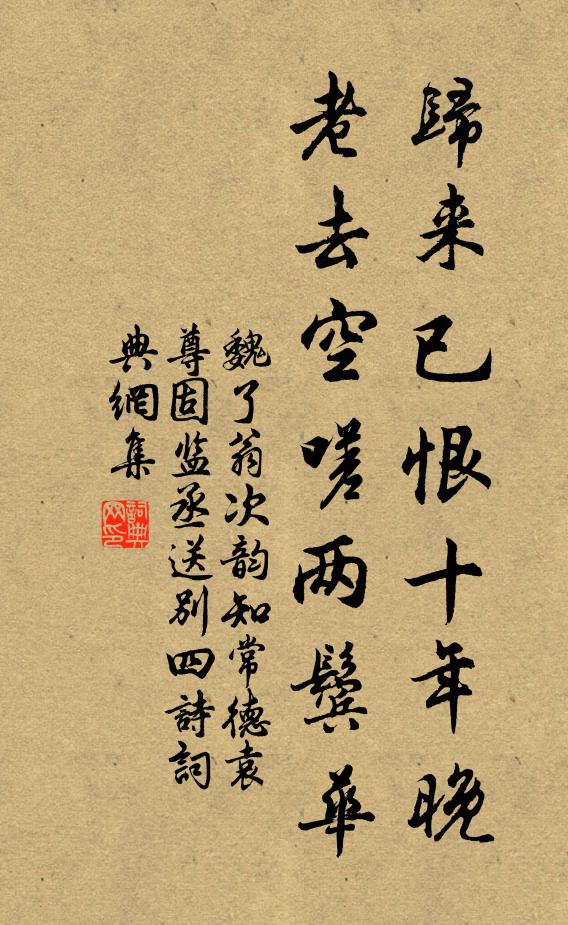 歸来已恨十年晚
老去空嗟两鬓華
魏了翁次韵知常德袁
尊固监丞送别四詩詞
典網集
詞典網印